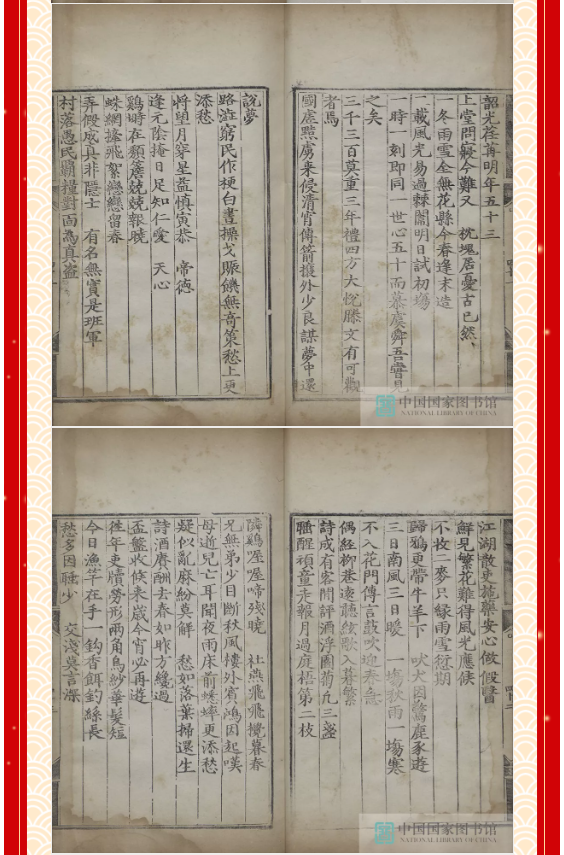 韶光荏苒明年五十三
上堂問寢今難又 枕塊居憂古已然
一冬雨雪全無花縣今春逢未造
一載風光易過棘闈明日試初塲
一時一刻即同一世心五十而慕虞舜吾嘗見
之矣
三千三百莫重三年禮四方大悅滕文有可觀
者焉
國虛黠虜来侵清宵傳箭援外少良謀夢中還
說夢
路澁窮民作梗白晝操戈賑饑無奇策愁上更
添愁
将望月穿星益慎寅恭 帝德
逢元陰掩日足知仁愛 天心
鷄時在頽簷兢兢報曉
蛛網搀飛絮戀戀留春
弄假成真非隱士 有名無實是班軍
村落憑民覇糧對面為真盗
中国国家图书馆
NATIONAL LIBRARY OF CHINA
江湖散吏施藥安心做假醫
鮮見繁花難得風光應候
不收二麥只緣雨雪衍期
歸鴉更帶牛羊下 吠犬因驚鹿豕遊
三日南風三日暖 一塲秋雨一塲寒
不入花門傳言鼓吹迎春急
偶經柳巷遠聽絃歌入暮繁
詩成有客閒評酒浮園菊亢三盞
睡醒頑童走報月過庭梧第二枝
隣鷄喔喔啼残曉 社燕飛飛攪暮春
兄無弟少目斷秋風樓外賓鴻因起嘆
母逝兒亡耳聞夜雨床前蟋蟀更添愁
凝似亂麻紛莫解 愁如落葉掃還生
詩酒賡酬去春如昨方纔過
盃盤收候来歳今宵必再遊
徃年吏牘勞形兩角烏紗華髪短
今日漁竿在手一鈎香餌釣絲長
愁多因睡少 交淺莫言深
中国国家图书馆
NATIONAL LIBRARY OF CHINA